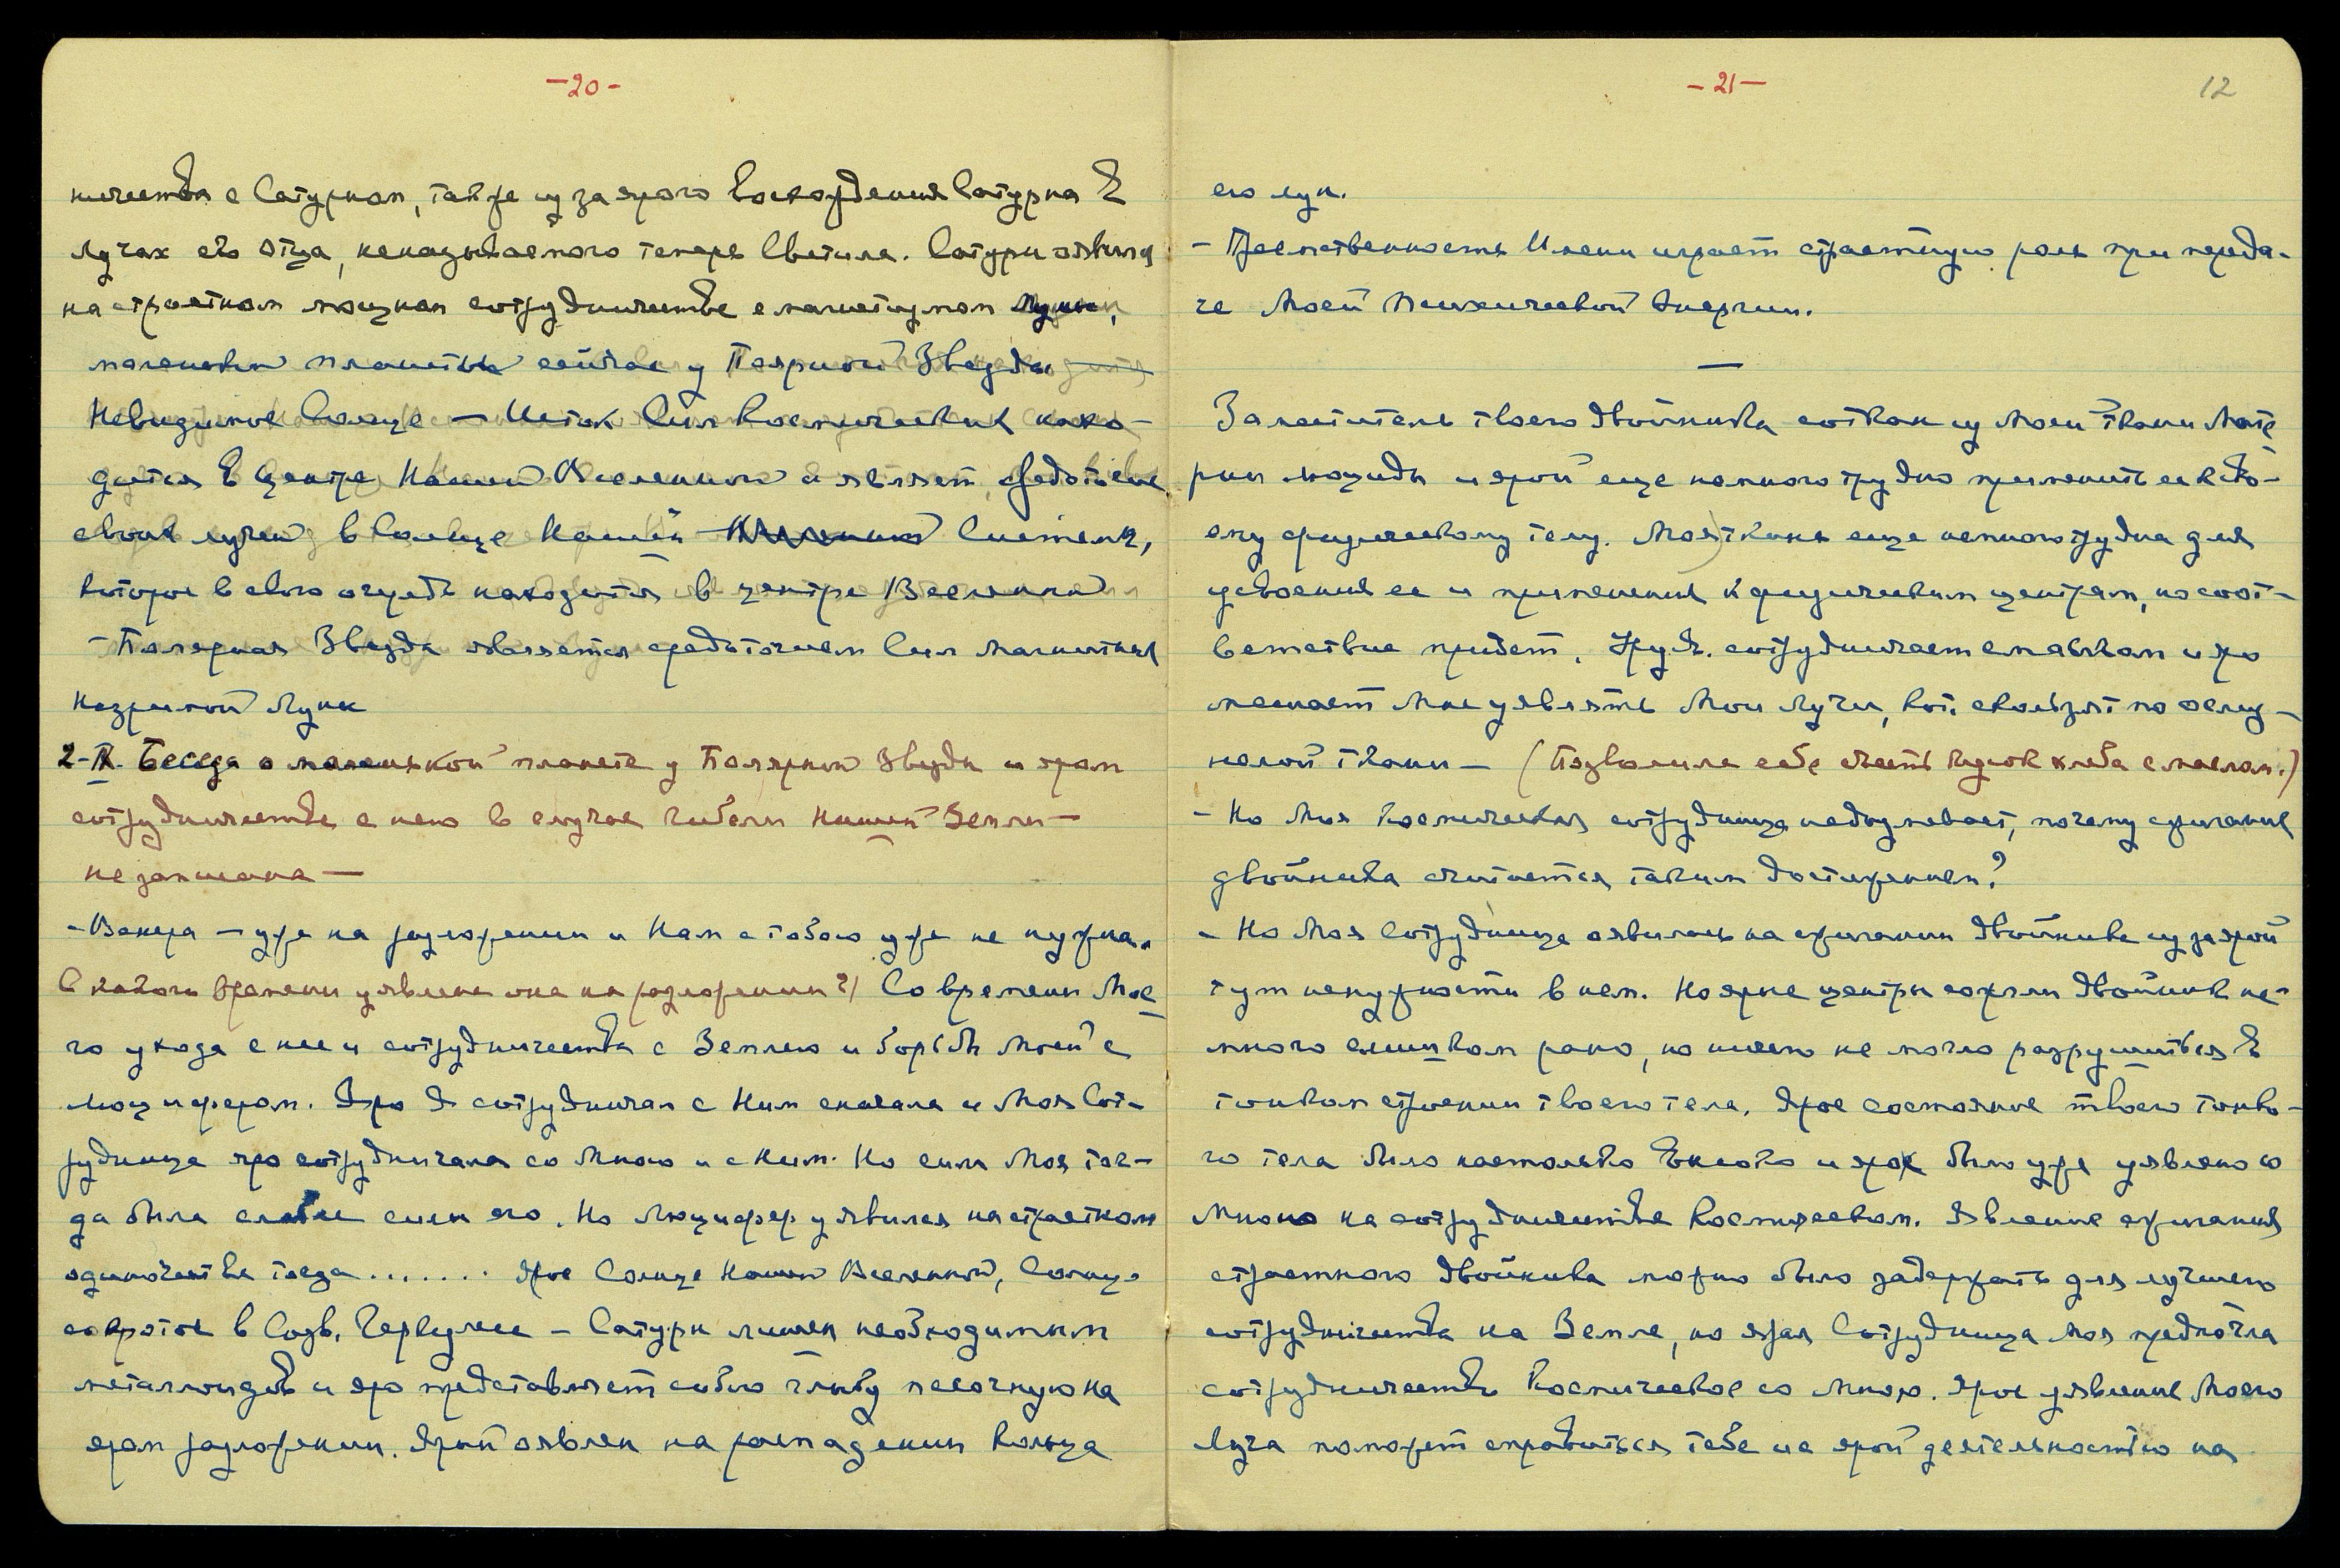 -20-
ничества с Сатурном, также из за ярого восхождения Сатурна в
Лучах его Отца, неназываемого теперь Светила. Сатурн явился
на страстном мощном сотрудничестве с магнетизмом Луны,
маленькой планеты сейчас у Полярной Звезды
Невидимое Солнце — Исток Сил Космических нахо-
дится в центре Нашей Вселенной и являет средоточие
своих лучей в Солнце Нашей Системы,
которое в свою очередь находится в центре Вселенной
- Полярная Звезда является средоточием Сил Магнитных
незримой Луны
2-II. Беседа о маленькой планете у Полярной Звезды и яром
сотрудничестве с нею в случае гибели Нашей Земли —
не записана —
- Венера — уже на разложении и Нам с тобою уже не нужна.
С какого времени уявлена она на разложении?) Со времени Мое
го ухода с нее и сотрудничества с Землею и борьбы Моей с
Люцифером. Яро Я сотрудничал с Ним сначала и Моя Сот-
рудница яро сотрудничала со Мною и с Ним. Но сила Моя тог-
да была слабее силы его. Но Люцифер уявился на страстном
одиночестве тогда ....... Ярое Солнце Нашей Вселенной, Солнце
сокрытое в Созв. Геркулеса — Сатурн лишен необходимых
металлоидов и яро представляет собою глыбу песочную на
яром разложении. Ярый оявлен на распадении Кольца
-21-
12
его лун.
- Преемственность Имени играет страстную роль при переда-
че Моей Психической Энергии.
—
Заместитель твоего двойника соткан из Моей ткани Мате
рии люциды и ярой еще немного трудно применить ее к тво-
ему физическому телу. Моя ткань еще немного трудна для
усвоения ее и применения к физическим центрам, но соот-
ветствие придет. Уруз. сотрудничает с маслом и яро
мешает Мне уявлять Мои Лучи, кот. скользят по
ткани — (Позволила себе съесть кусок хлеба с маслом.)
- Но Моя Космическая сотрудница недоумевает, почему сжигание
двойника считается таким достижением?
- Но Моя Сотрудница оявилась на сжигании двойника из за ярой
тут ненужности в нем. Но ярые центры сожгли двойник не-
много слишком рано, но ничего не могло разрушиться в
тонком строении твоего тела. Ярое состояние твоего тонко-
го тела было настолько высоко и яро было уже уявлено со
Мною на сотрудничестве Космическом. Явление сжигания
страстного двойника можно было задержать для лучшего
сотрудничества на Земле, но ярая Сотрудница Моя предпочла
сотрудничество Космическое со Мною. Ярое уявление Моего
Луча поможет справиться тебе с ярой деятельностью на